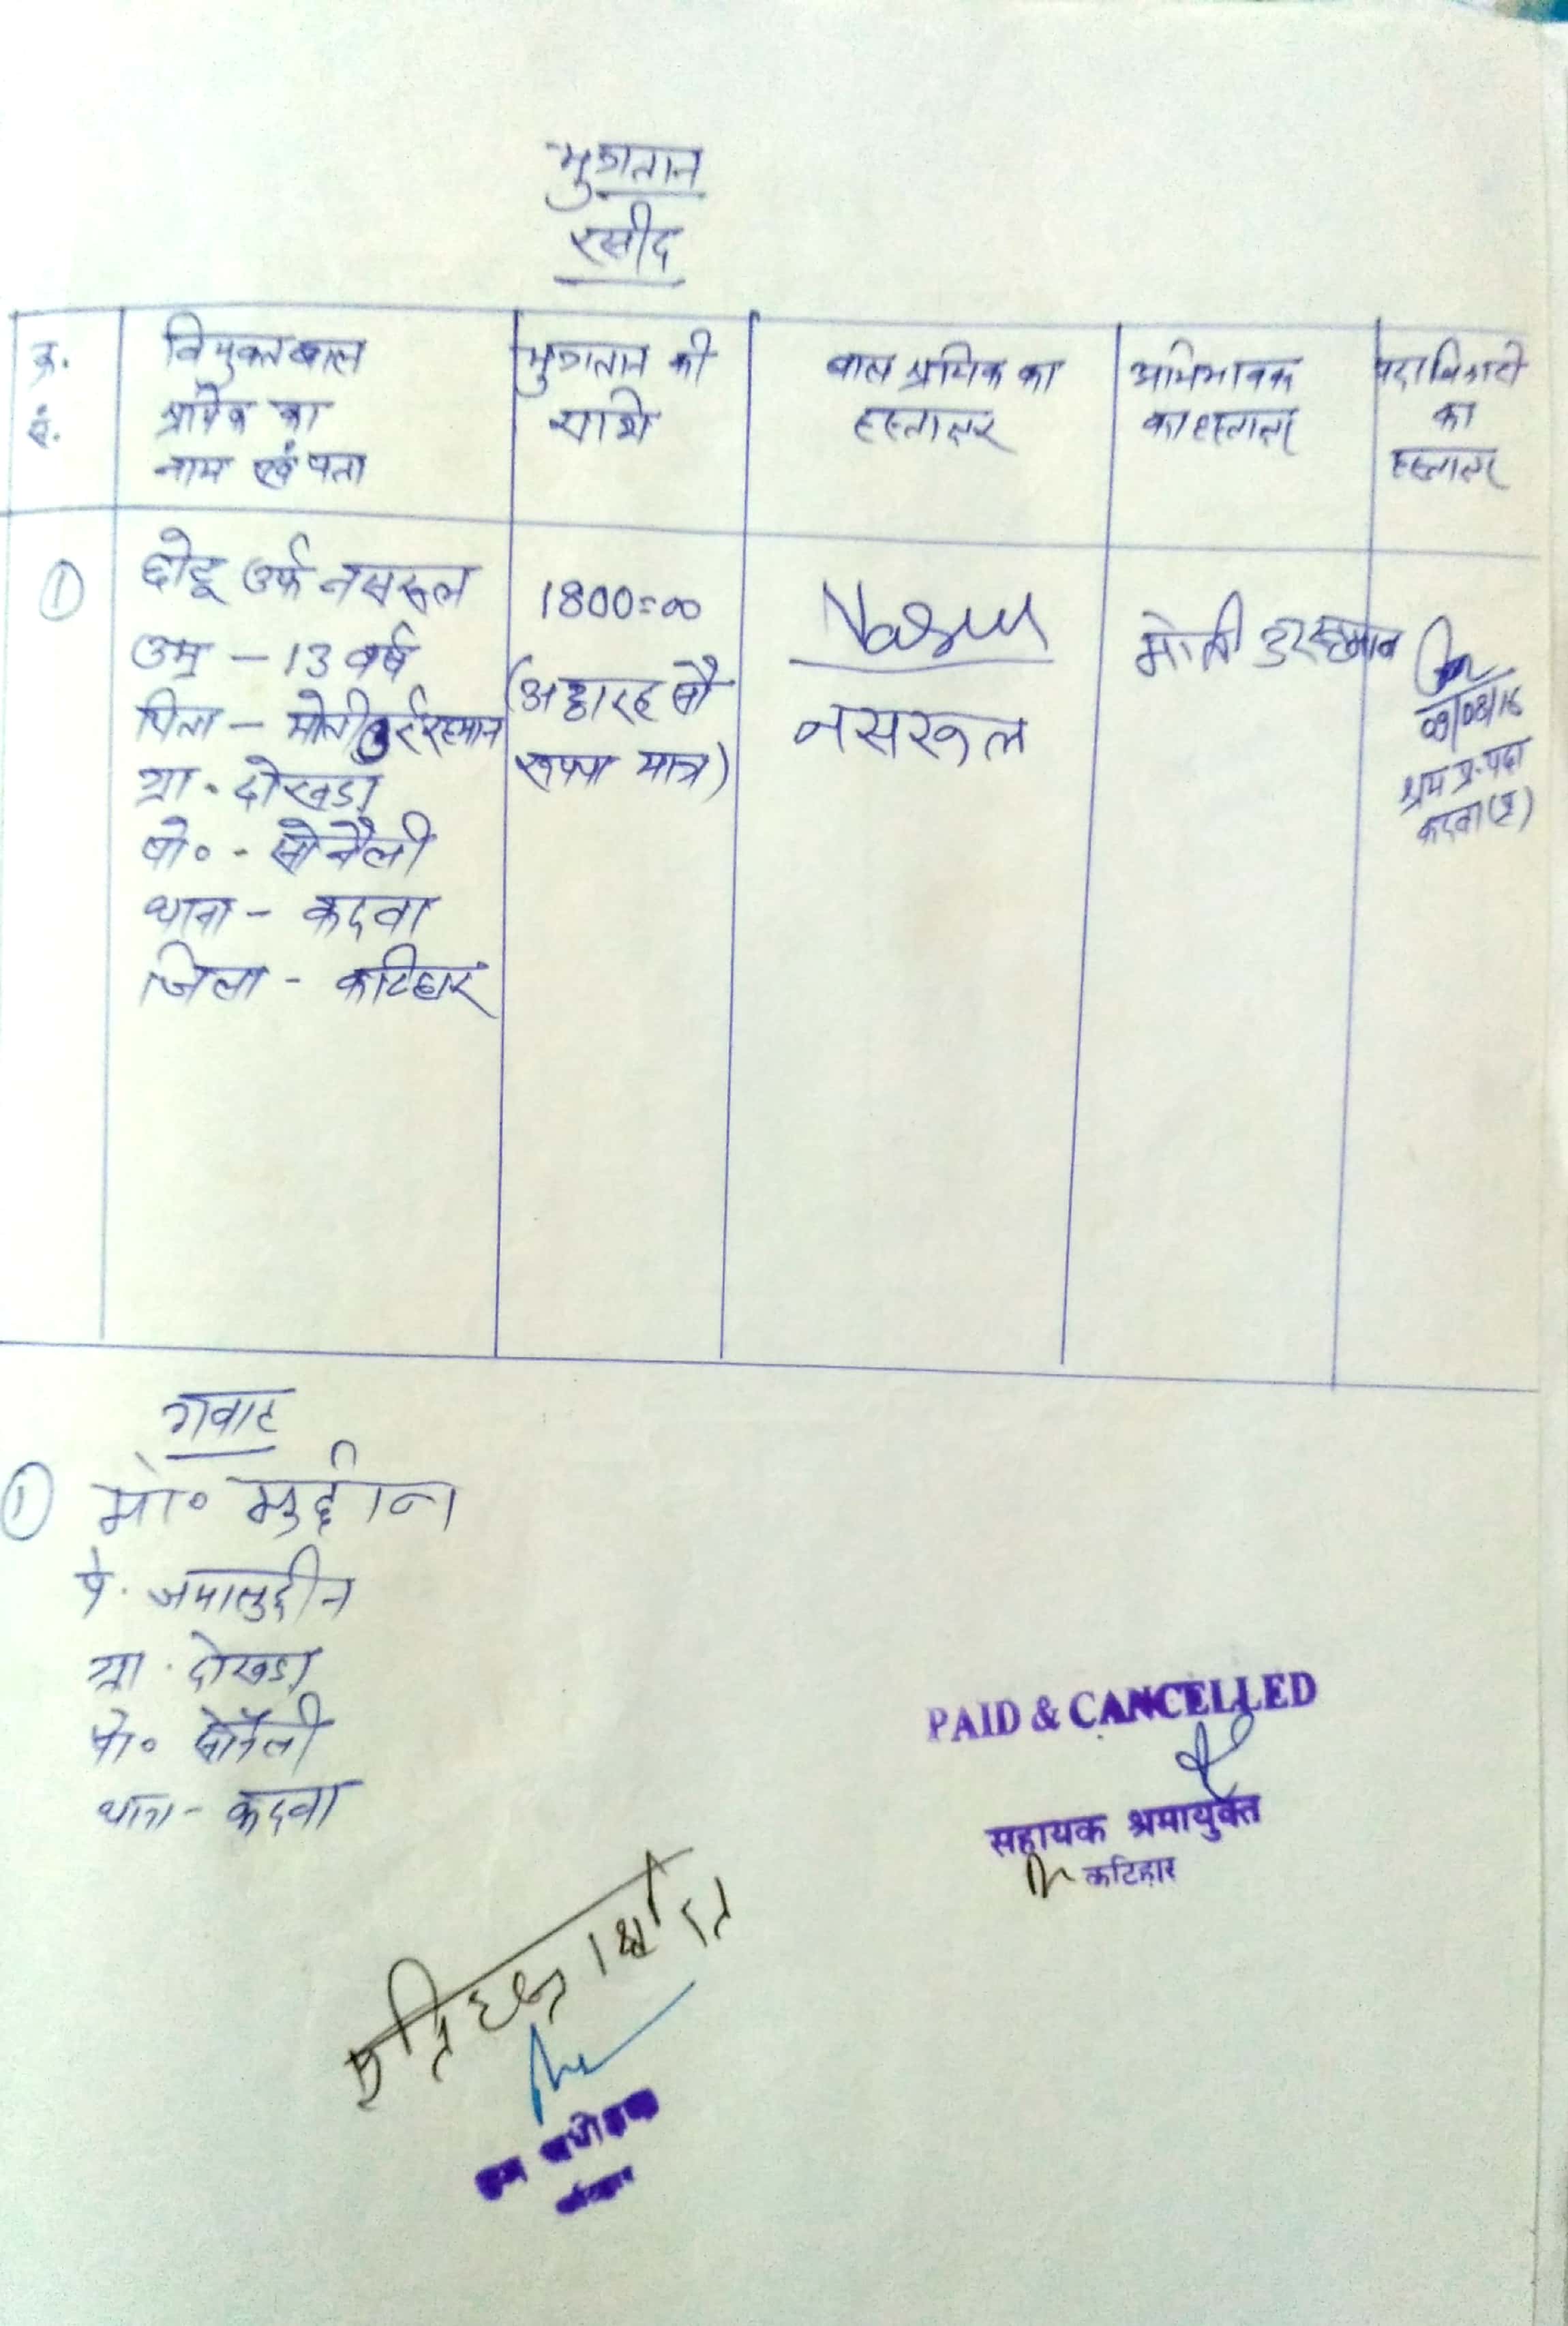 भुगतान
रसीद
क्र. सं.
विमुक्त बाल श्रमिक का नाम एवं पता
भुगतान की राशि
बाल श्रमिक का हस्ताक्षर
अभिभावक का हस्ताक्षर
पदाधिकारी का हस्ताक्षर
① छोटू उर्फ नसरूल
उम्र - 13 वर्ष
पिता - मोती उर्र रहमान
ग्रा. दोखड़ा
पो० - सोनैली
थाना - कदवा
जिला - कटिहार
1800=00
(अठ्ठारह सौ
रूपया मात्र)
नसरूल
मोती उर रहमान
09/08/16
श्रम प्र. पदा
कदवा
गवाह
① मो० मुद्दीन
पे. जमालुद्दीन
ग्रा. दोखड़ा
पो० सोनैली
थाना - कदवा
PAID & CANCELLED
सहायक श्रमायुक्त
कटिहार